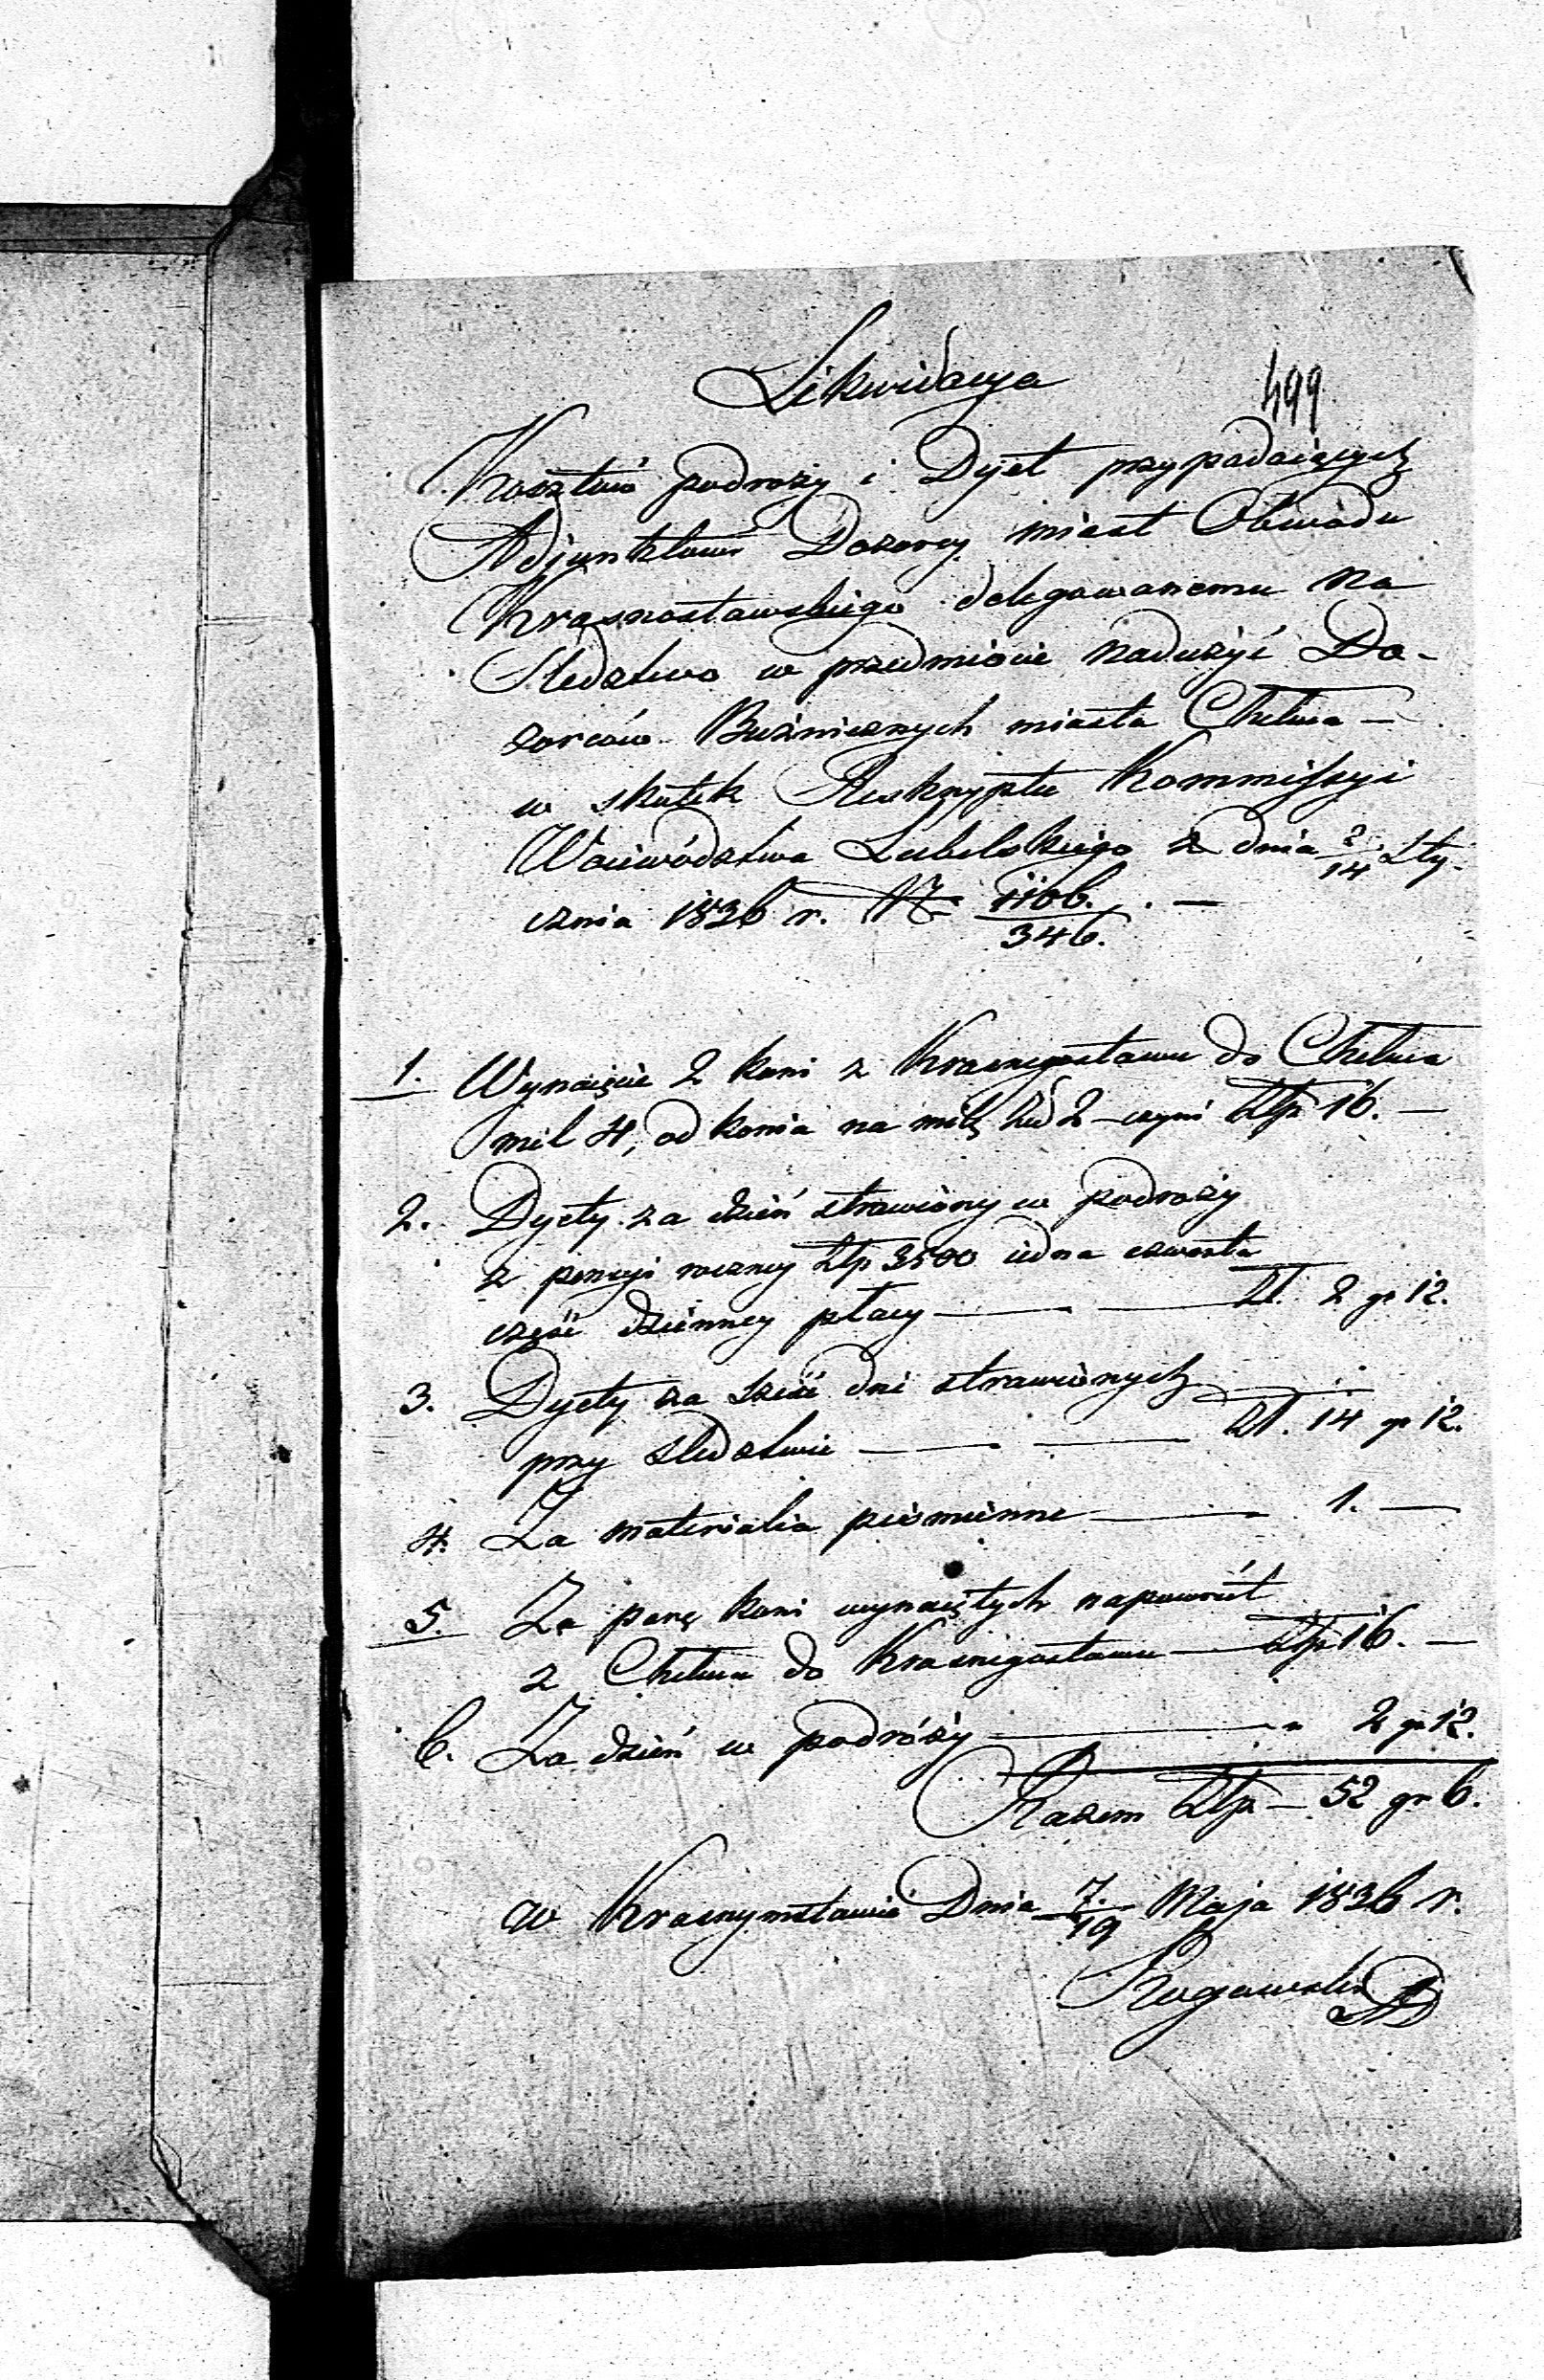 Likwidacya
499
Kosztów podroży i Dyet przypadaiących
Adjunktowi Dozorcy miast Obwodu
Krasnostawskiego delegowanemu na
Sledztwo w przedmiocie nadużyć Do-
zorców Bużnicznych miasta Chełma —
w skutek Reskryptu Kommissyi
Woiewództwa Lubelskiego z dnia 2/14 Sty-
cznia 1836 r. N 1106./346. . —
1. Wynaięcie 2 koni z Krasnegostawu do Chełma
mil 4, od konia na milę Zł 2 — czyni Złp 16. —
2. Dyety za dzień strawiony w podroży
z pensyi roczney Złp 3500 iedna czwarta
część dzienney płacy — — Zł. 2 gr 12.
3. Dyety za sześć dni strawionych
przy sledztwie — — Zł. 14 gr 12.
4. Za materialia piśmienne — — 1. —
5. Za parę koni wynaiętych napowrót
z Chełma do Krasnegostawu — Złp 16. —
6. Za dzień w podróży — „ 2 gr 12.
Razem Złp — 52 gr 6.
w Krasnymstawie Dnia 7./19 Maja 1836 r.
Rogowski